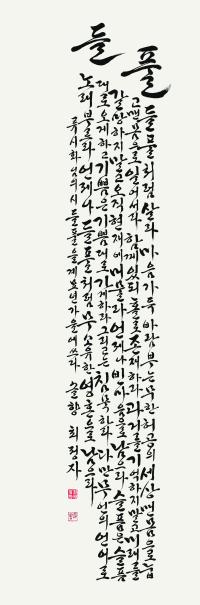 들풀
들풀처럼 살라 마음 가득 바람 부는 무한 허공의 세상 맨 몸으로 눕
고 맨 몸으로 일어서라 함께 있되 홀로 존재하라 과거를 기억하지 말고 미래를
갈망하지 말고 오직 현재에 머물라 언제나 빈 마음으로 남으라 슬픔은 슬픔
대로 오게 하고 기쁨은 기쁨대로 가게 하라 그리고는 침묵하라 다만 무언의 언어로
노래 부르라 언제나 들풀처럼 무소유한 영혼으로 남으라
류시화 님의 시 들풀을 가을에 쓰다 솔향 최정자